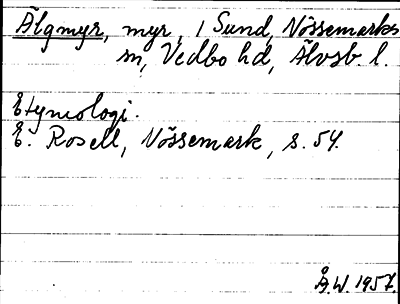 Älgmyr, myr, i Sund, Nössemarks
sn, Vedbo hd, Älvsb. l.
Etymologi.
E. Rosell, Nössemark, s. 54.
Å.W. 1957.